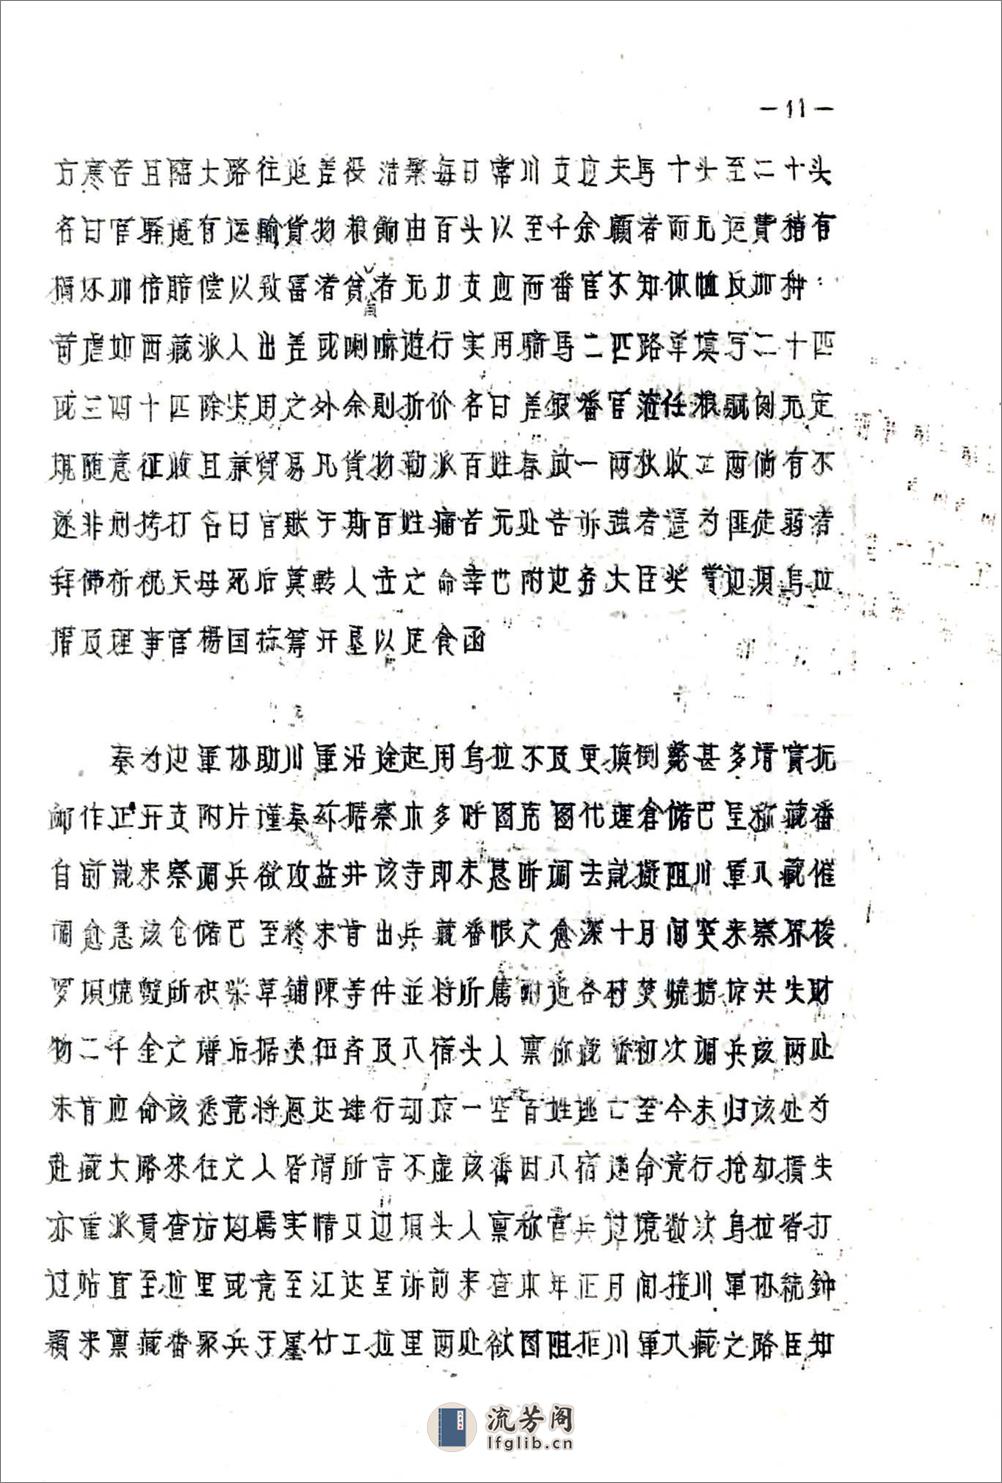 —11—
方寒苦且临大路往返差役浩繁每日常川支应夫马十头至二十头
名曰官驿遞有运输貨物粮餉由百头以至千余頭者而无运費稍有
损坏加倍賠偿以致富者貧者无力支应而番官不知体恤反加种
首虐如西藏派人出差或喇嘛遊行实用騎馬二匹路单填写二十匹
或三四十匹除实用之外余則折价名曰差银番官蒞任粮賦例无定
規随意征收且兼貿易凡貨物勒派百姓春放一两秋收二两倘有不
遂非刑拷打名曰官账于斯百姓痛苦无处告訴强者逼为匪徒弱者
拜佛祈祝天母死后莫转人世之命幸也附边务大臣奖賞边垻乌拉
措及理事官楊国栋籌开垦以足食函
奏为边軍协助川軍沿途起用乌拉不及更換倒斃甚多请賞抚
邮作正开支附片谨奏称据察木多呼图克图代理倉储巴呈称藏番
自前歲来察调兵欲攻益井该寺即未恳断调去就拟阻川軍入藏催
调愈急该仓储巴至終未肯出兵藏番恨之愈深十月间突来察界梭
罗垻燒毁所积柴草铺陈等件並将所属附近各村焚燒掳掠共失财
物二千金之谱后据类伍齐及八宿头人禀称藏番初次调兵该两处
未肯应命该悉竟将恩达肆行劫掠一空百姓逃亡至今未归该处为
赴藏大路来往之人皆谓所言不虚该番因八宿违命竟行抢劫损失
亦重派員查访均属实情又边垻头人禀称官兵过境数次乌拉皆打
过站直至拉里或竟至江达呈诉前来查本年正月间接川軍协統鈡
颖来禀藏番聚兵于墨竹工拉里两处欲图阻拒川軍入藏之路臣知
流芳阁
lfglib.cn